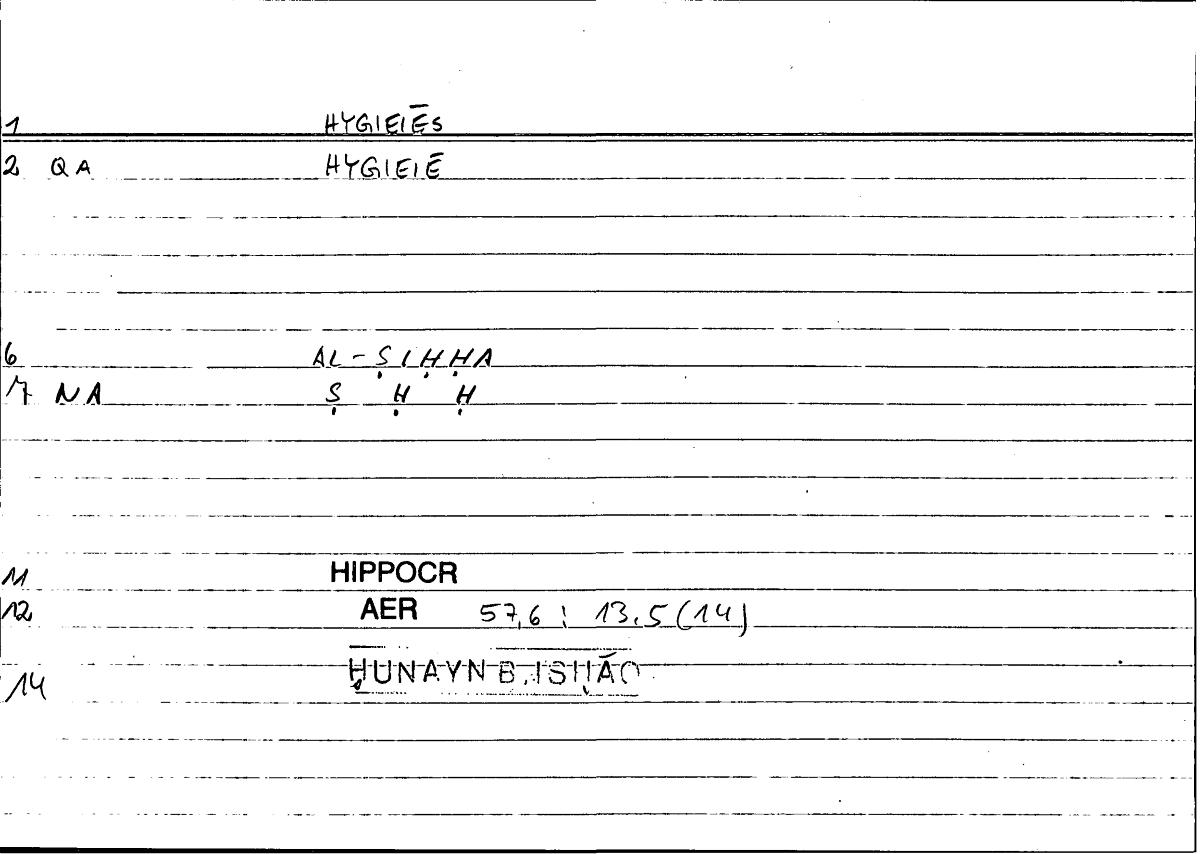 1 HYGIEIĒS
2 QA HYGIEIĒ
6 AL-ṢIḤḤA
7 NA Ṣ Ḥ Ḥ
11 HIPPOCR
12 AER 57,6 : 13,5 (14)
14 ḤUNAYN B. ISḤĀQ